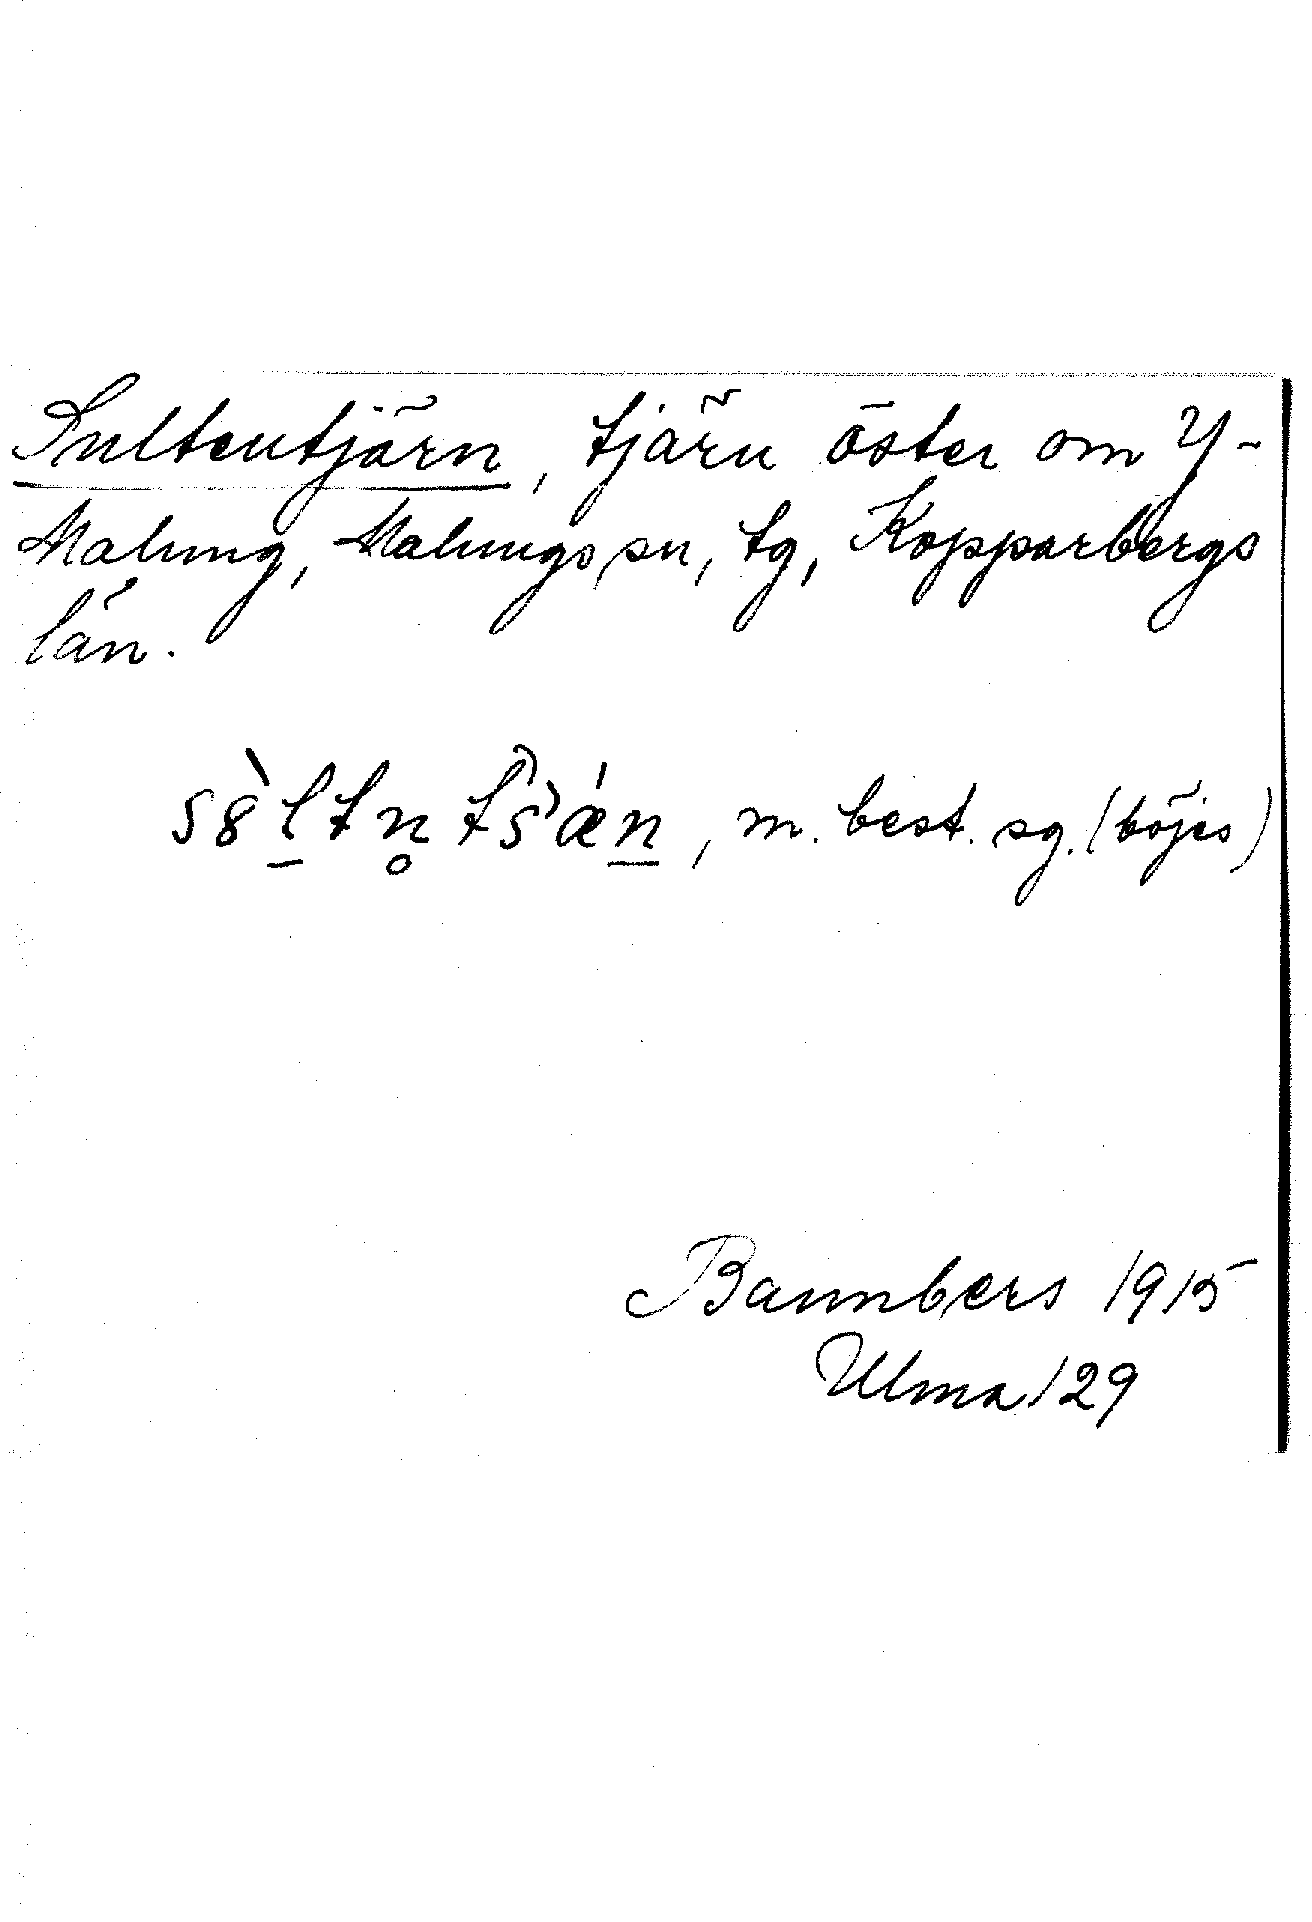 Sultentjärn, tjärn öster om Y-
Malung, Malungs sn, tg, Kopparbergs
län.
s8̀l̲tn̥ tš'ǽn̲, m. best. sg. (böjes)
Bannbers 1915
Ulma 129